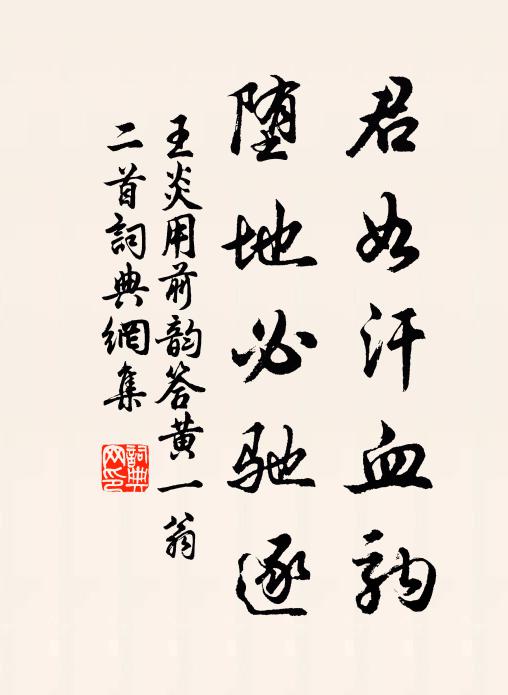 君如汗血駒
堕地必馳逐
王炎用前韵答黄一翁
二首詞典網集
詞典
网印